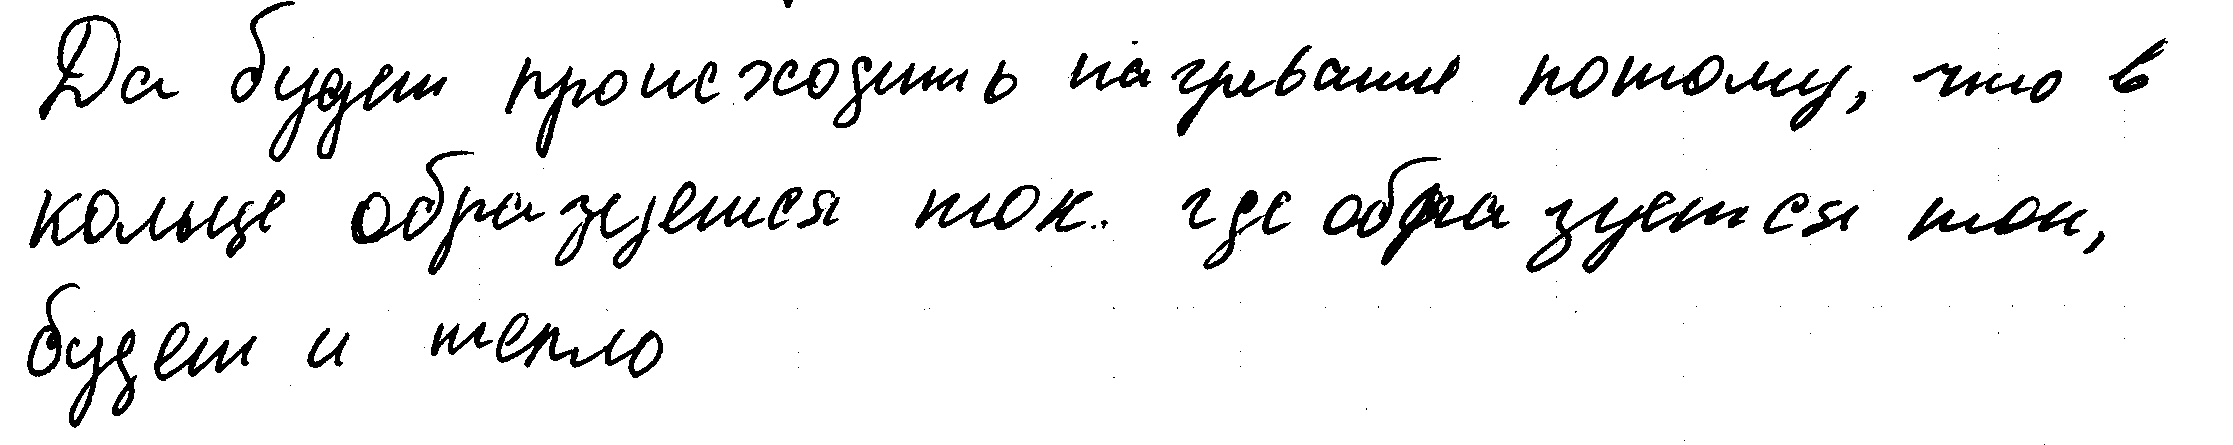 Да будет происходить нагревание потому, что в
кольце образуется ток. где образуется ток,
будет и тепло